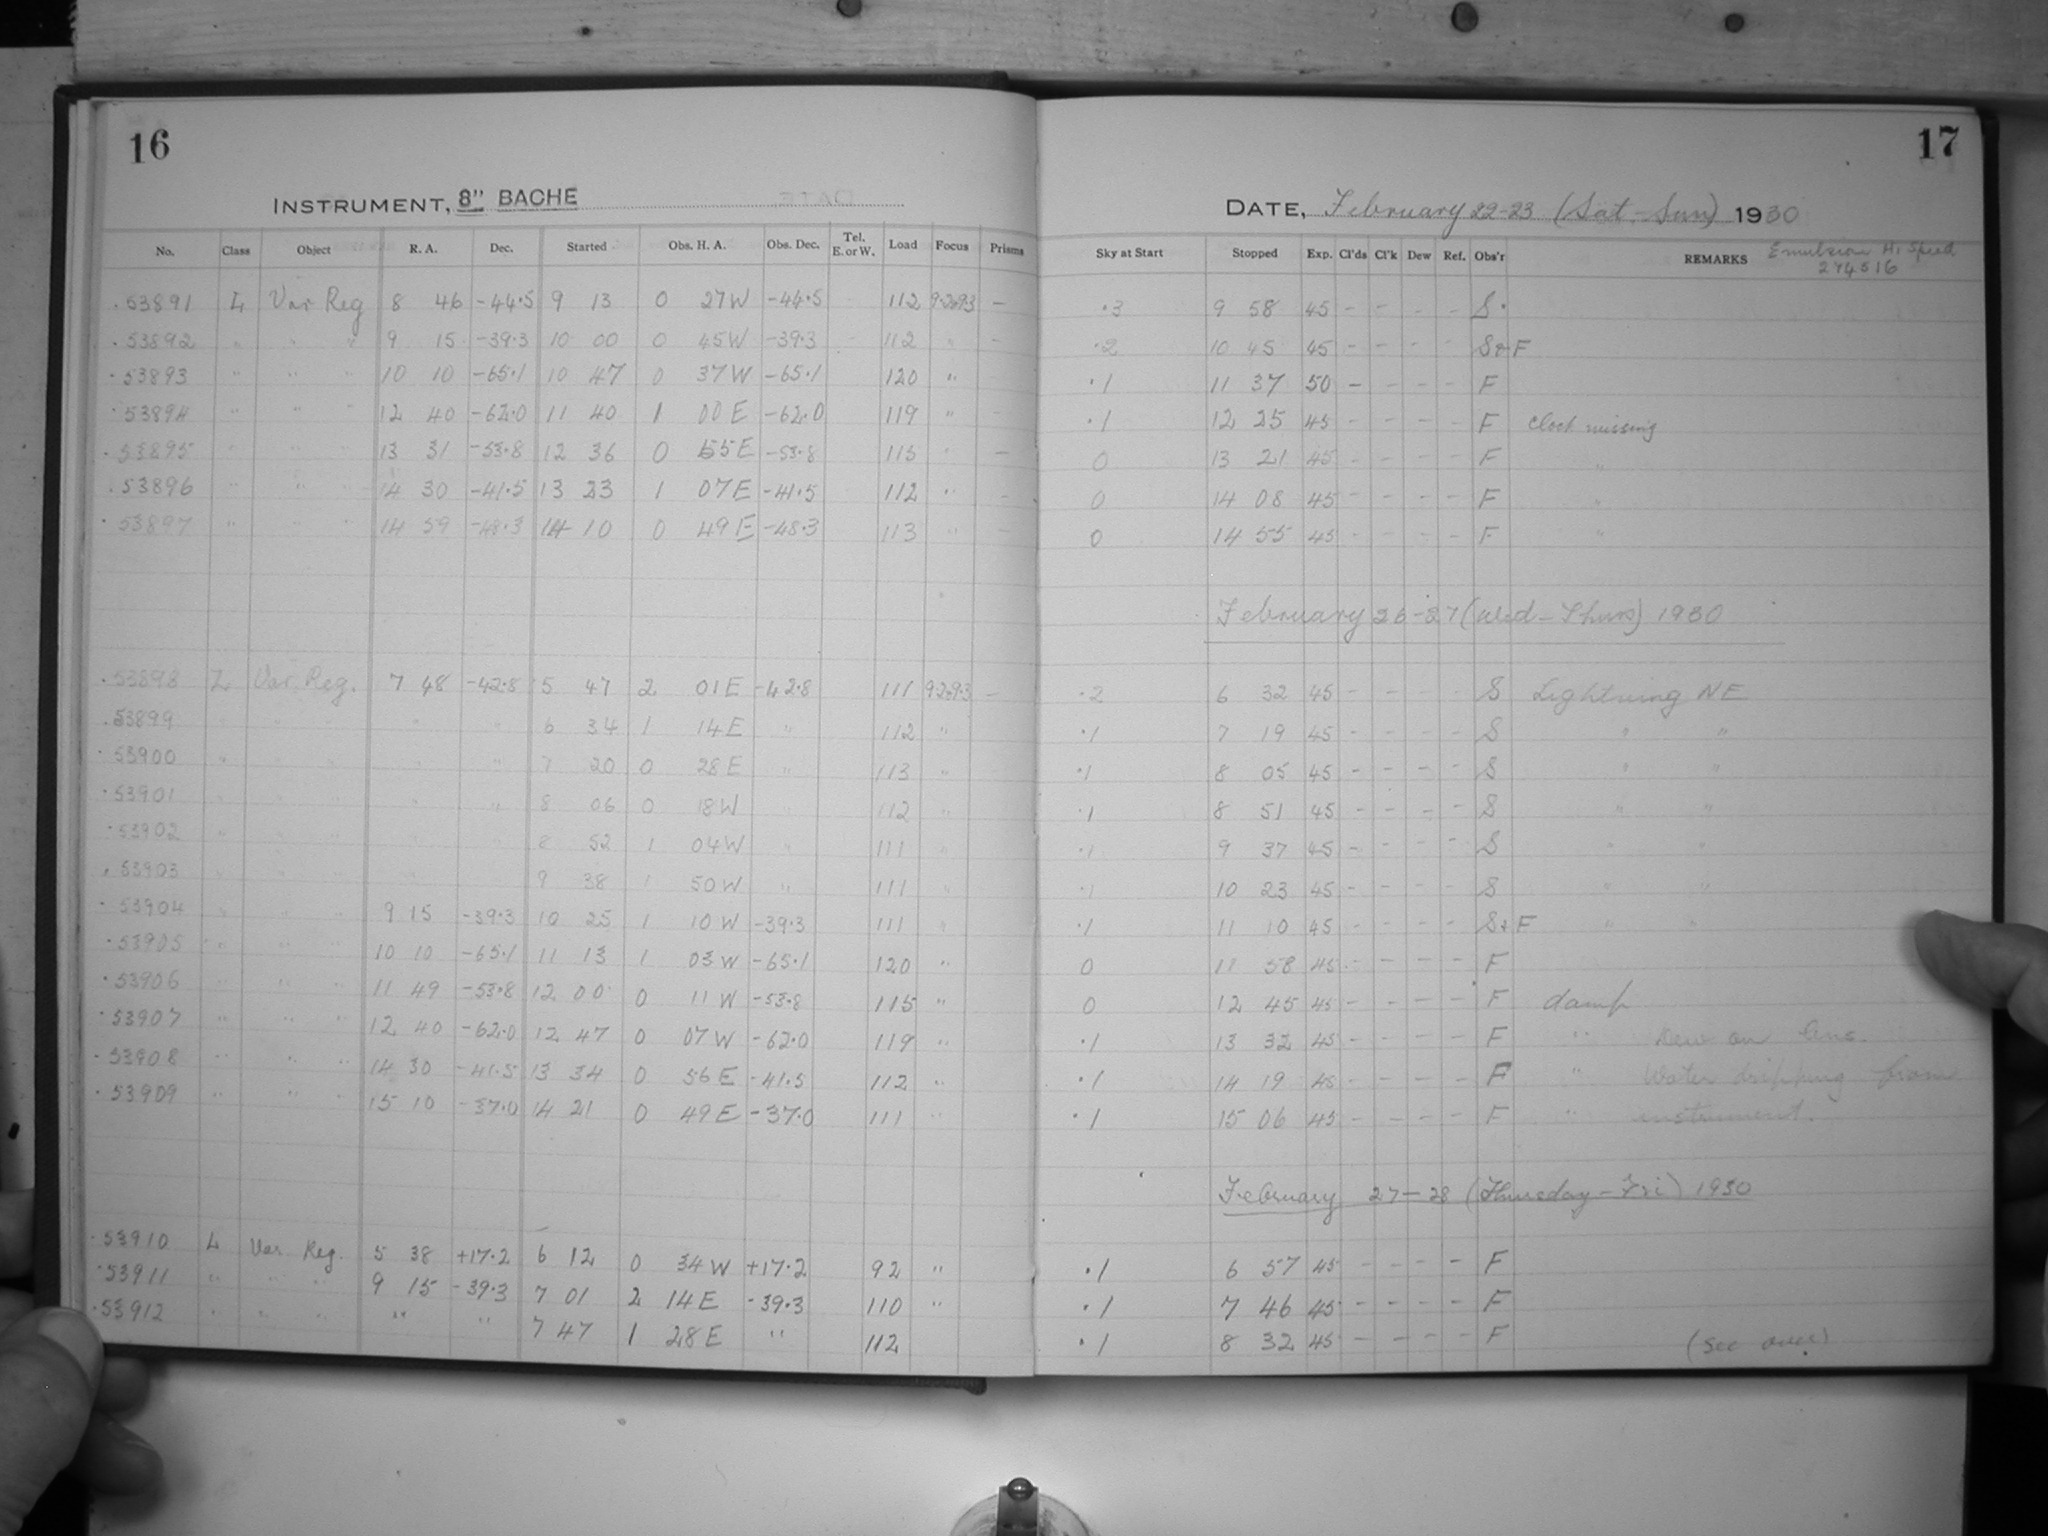 16
INSTRUMENT, 8" BACHE
No. Class Object R. A. Dec. Started Obs. H. A. Obs. Dec. Tel. E. or W. Load Focus Prisms
.53891 L Var Reg 8 46 -44.5 9 13 0 27W -44.5 112 9.2.9.3 -
.53892 " " " 9 15 -39.3 10 00 0 45W -39.3 112 " -
.53893 " " " 10 10 -65.1 10 47 0 37W -65.1 120 "
.53894 " " " 12 40 -62.0 11 40 1 00E -62.0 119 " -
.53895 " " " 13 31 -53.8 12 36 0 55E -53.8 115 " -
.53896 " " " 14 30 -41.5 13 23 1 07E -41.5 112 " -
.53897 " " " 14 59 -48.3 14 10 0 49E -48.3 113 " -
.53898 L Var. Reg. 7 48 -42.8 5 47 2 01E -42.8 111 9.2.9.3 -
.53899 " " " " " 6 34 1 14E " 112 "
.53900 " " " " " 7 20 0 28E " 113 "
.53901 " " " " " 8 06 0 18W " 112 "
.53902 " " " " " 8 52 1 04W " 111 "
.53903 " " " " " 9 38 1 50W " 111 "
.53904 " " " 9 15 -39.3 10 25 1 10W -39.3 111 "
.53905 " " " 10 10 -65.1 11 13 1 03W -65.1 120 "
.53906 " " " 11 49 -53.8 12 00 0 11W -53.8 115 "
.53907 " " " 12 40 -62.0 12 47 0 07W -62.0 119 "
.53908 " " " 14 30 -41.5 13 34 0 56E -41.5 112 "
.53909 " " " 15 10 -37.0 14 21 0 49E -37.0 111 "
.53910 L Var Reg. 5 38 +17.2 6 12 0 34W +17.2 92 "
.53911 " " " 9 15 -39.3 7 01 2 14E -39.3 110 "
.53912 " " " " " 7 47 1 28E " 112
17
DATE, February 22-23 (Sat-Sun) 1930
Sky at Start Stopped Exp. Cl'ds Cl'k Dew Ref. Obs'r REMARKS Emulsion Hi Speed
274516
.3 9 58 45 - - - - S.
.2 10 45 45 - - - - S&F
.1 11 37 50 - - - - F
.1 12 25 45 - - - - F Clock missing
0 13 21 45 - - - - F "
0 14 08 45 - - - - F "
0 14 55 45 - - - - F "
February 26-27 (Wed-Thurs) 1930
.2 6 32 45 - - - - S Lightning NE
.1 7 19 45 - - - - S " "
.1 8 05 45 - - - - S " "
.1 8 51 45 - - - - S " "
.1 9 37 45 - - - - S " "
.1 10 23 45 - - - - S " "
.1 11 10 45 - - - - S&F " "
0 11 58 45 - - - - F
0 12 45 45 - - - - F damp
.1 13 32 45 - - - - F " Dew on lens.
.1 14 19 45 - - - - F " Water dripping from
.1 15 06 45 - - - - F " instrument.
February 27-28 (Thursday-Fri) 1930
.1 6 57 45 - - - - F
.1 7 46 45 - - - - F
.1 8 32 45 - - - - F (see over)